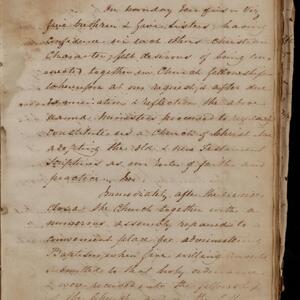 On monday
five brethren & five sisters, having
confidence in each others Christian
Character, felt desirous of being con
nected together in Church fellowship
wherefore at our request, & after due
examination & reflection the above
named ministers proceeded to
constitute us a Church of Christ
adopting the old & new Testament
Scriptures as our rule of faith and
practice
Immediately after the exercise
closed the Church together with a
numerous assembly repaired to
convenient place for administering
Baptism, when five willing
submitted to that holy ordinance
& were received into the fellowship
of the Church